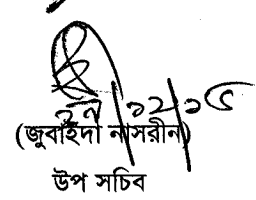 ২৭/১২/১৫
(জুবাইদা নাসরীন)
উপ সচিব